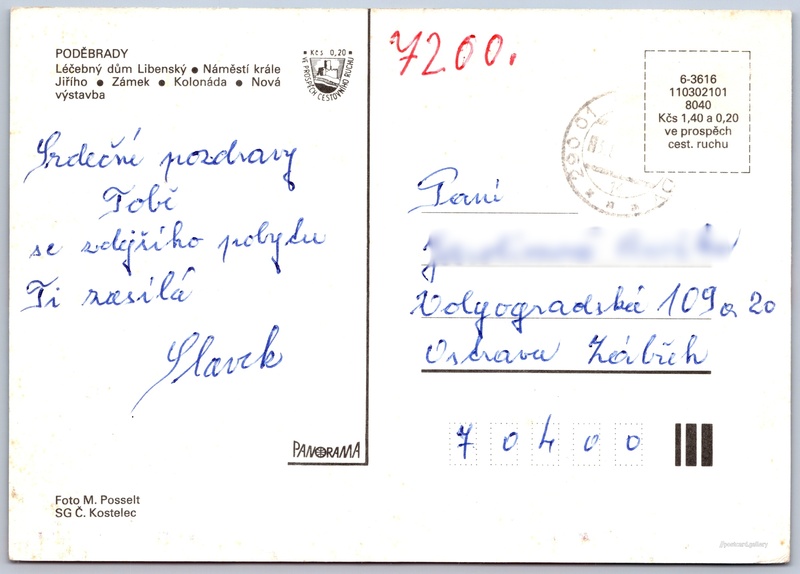 PODĚBRADY
Léčebný dům Libenský ● Náměstí krále
Jiřího ● Zámek ● Kolonáda ● Nová
výstavba
Kčs 0,20
VE PROSPĚCH CESTOVNÍHO RUCHU
7200.
6-3616
110302101
8040
Kčs 1,40 a 0,20
ve prospěch
cest. ruchu
290 01
Srdečné pozdravy
Tobě
se zdejšího pobytu
Ti zasílá
Slavek
Paní
Volgogradská 109a 20
Ostrava Zábřeh
70400
PANORAMA
Foto M. Posselt
SG Č. Kostelec